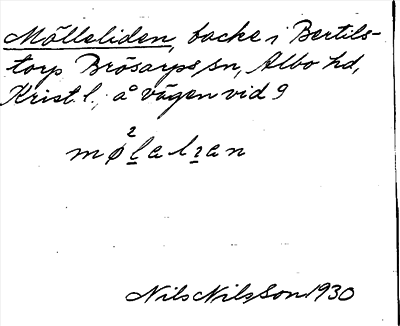 Mölleliden, backe i Bertils-
torp Brösarps sn, Albo hd,
Krist. l., å vägen vid 9
mø²lalɪan
Nils Nilsson 1930